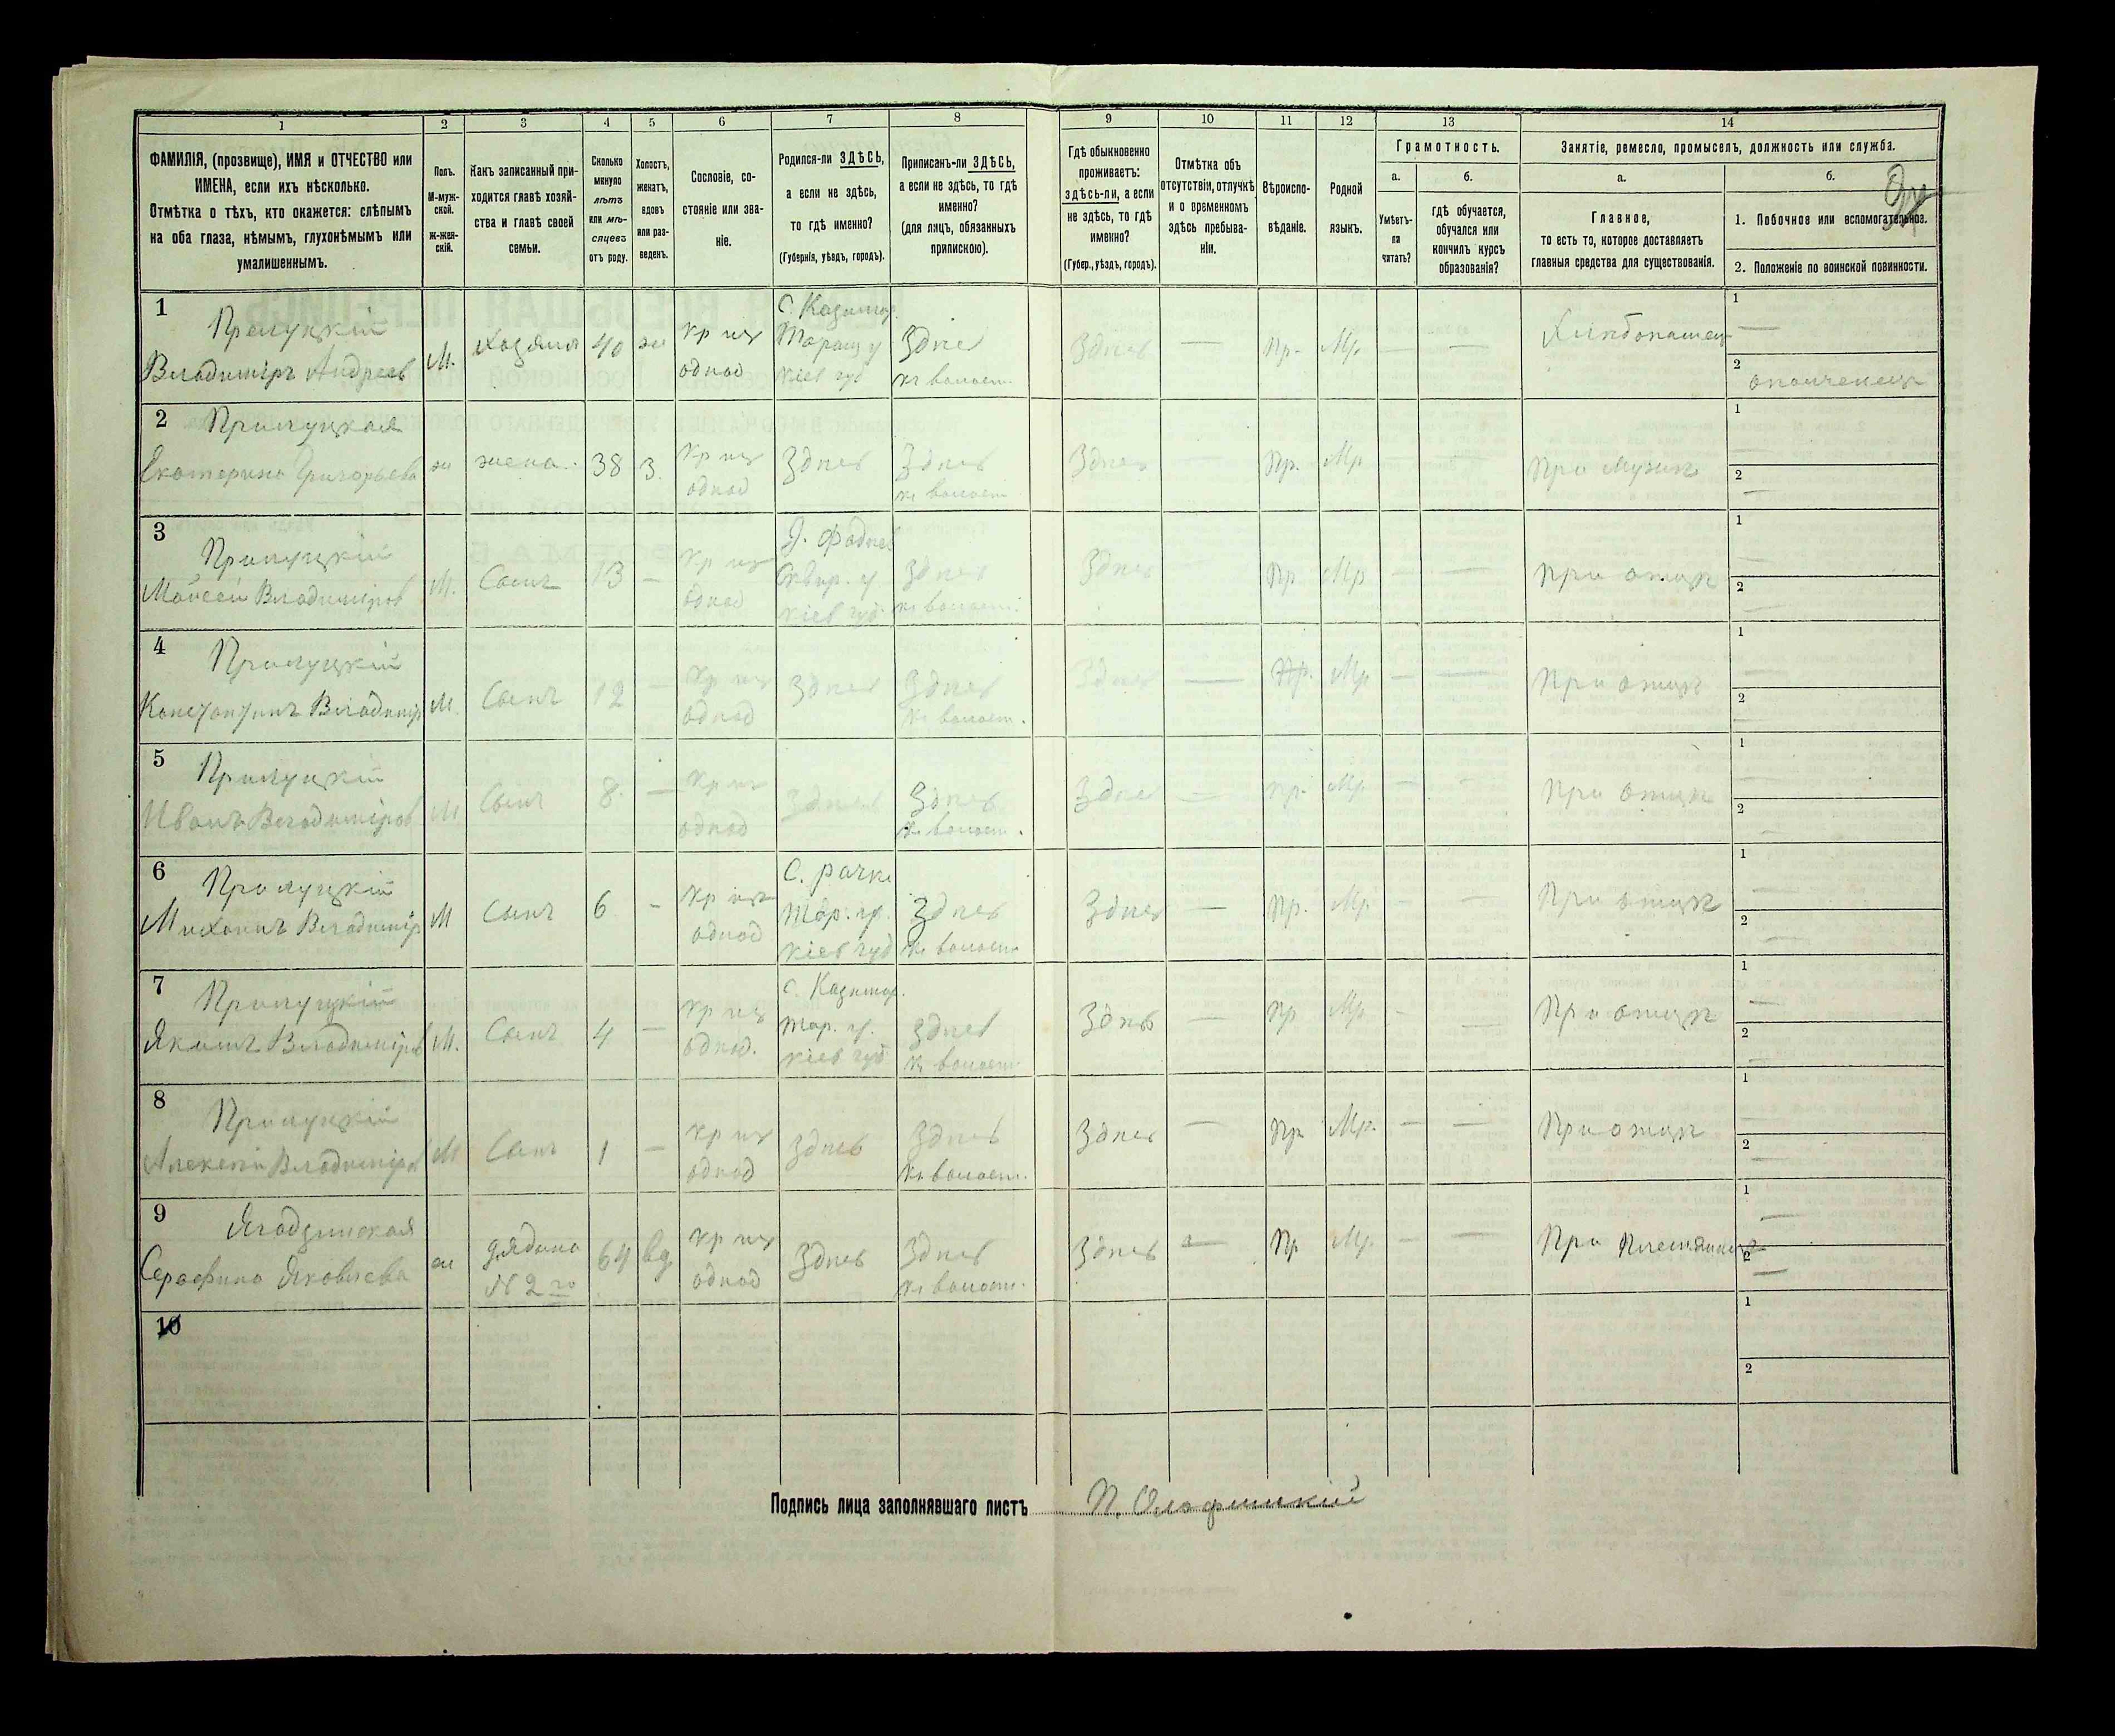 1 2 3 4 5 6 7 8 9 10 11 12 13 14
ФАМИЛІЯ, (прозвище), ИМЯ и ОТЧЕСТВО или
ИМЕНА, если ихъ нѣсколько.
Отмѣтка о тѣхъ, кто окажется: слѣпымъ
на оба глаза, нѣмымъ, глухонѣмымъ или
умалишеннымъ.
Полъ.
М-муж-
ской.
ж-жен-
скій.
Какъ записанный при-
ходится главѣ хозяй-
ства и главѣ своей
семьи.
Сколько
минуло
лѣтъ
или мѣ-
сяцевъ
отъ роду.
Холостъ,
женатъ,
вдовъ
или раз-
веденъ.
Сословіе, со-
стояніе или зва-
ніе.
Родился-ли ЗДѢСЬ,
а если не здѣсь,
то гдѣ именно?
(Губернія, уѣздъ, городъ).
Приписанъ-ли ЗДѢСЬ,
а если не здѣсь, то гдѣ
именно?
(для лицъ, обязанныхъ
припискою).
Гдѣ обыкновенно
проживаетъ:
здѣсь-ли, а если
не здѣсь, то гдѣ
именно?
(Губер., уѣздъ, городъ).
Отмѣтка объ
отсутствіи, отлучкѣ
и о временномъ
здѣсь пребыва-
ніи.
Вѣроиспо-
вѣданіе.
Родной
языкъ.
Грамотность.
а.
Умѣетъ-
ли
читать?
б.
гдѣ обучается,
обучался или
кончилъ курсъ
образованія?
Занятіе, ремесло, промыселъ, должность или служба.
а.
Главное,
то есть то, которое доставляетъ
главныя средства для существованія.
б.
1. Побочное или вспомогательное.
2. Положеніе по воинской повинности.
1
Прилуцкій
Владиміръ Андреев
М.
Хозяинъ
40
же
кр изъ
однод
С. Казимір.
Таращ у
Кіев губ
Здѣсь
къ волост.
Здѣсь
—
Пр.
Мр.
—
—
Хлѣбопашец
1
—
2
ополченецъ
2
Прилуцкая
Екатерина Григорьева
ж
жена
38
з.
Кр изъ
однод
Здѣсь
Здѣсь
къ волост
Здѣсь
—
Пр.
Мр
—
—
При мужѣ
1
2
—
3
Прилуцкій
Моисей Владиміров
М.
Сынъ
13
—
Кр изъ
однод
Сквир. у.
Кіев губ.
Здѣсь
къ волост.
Здѣсь
—
Пр
Мр
—
—
При отцѣ
1
—
2
—
4
Прилуцкій
Константинъ Владимір
М
Сынъ
12
—
Кр изъ
однод
Здѣсь
Здѣсь
къ волост.
Здѣсь
—
Пр.
Мр
—
—
При отцѣ
1
—
2
—
5
Прилуцкій
Иванъ Владиміров
М
Сынъ
8.
—
Кр изъ
однод
Здѣсь
Здѣсь
къ волост.
Здѣсь
—
Пр.
Мр
—
—
При отцѣ
1
—
2
—
6
Прилуцкій
Михаилъ Владимір
М
Сынъ
6
—
Кр изъ
однод
С. Рачки
Тар. у.
Кіев губ
Здѣсь
къ волост
Здѣсь
—
Пр.
Мр
—
—
При отцѣ
1
—
2
—
7
Прилуцкій
Якимъ Владиміров
М.
Сынъ
4
—
Кр изъ
однод.
С. Казимір.
Тар. у.
Кіев губ
Здѣсь
къ волост
Здѣсь
—
Пр
Мр
—
—
При отцѣ
1
—
2
—
8
Прилуцкій
Алексѣй Владиміров
М
Сынъ
1
—
кр изъ
однод
Здѣсь
Здѣсь
къ волост.
Здѣсь
—
Пр
Мр.
—
—
При отцѣ
1
—
2
—
9
Ягодзинская
Серафима Яковлева
ж
дядина
№ 2го
64
вд.
кр изъ
однод
Здѣсь
Здѣсь
къ волост.
Здѣсь
—
Пр
Мр.
—
—
При племянникѣ
1
—
2
—
10
1
2
Подпись лица заполнявшаго листъ